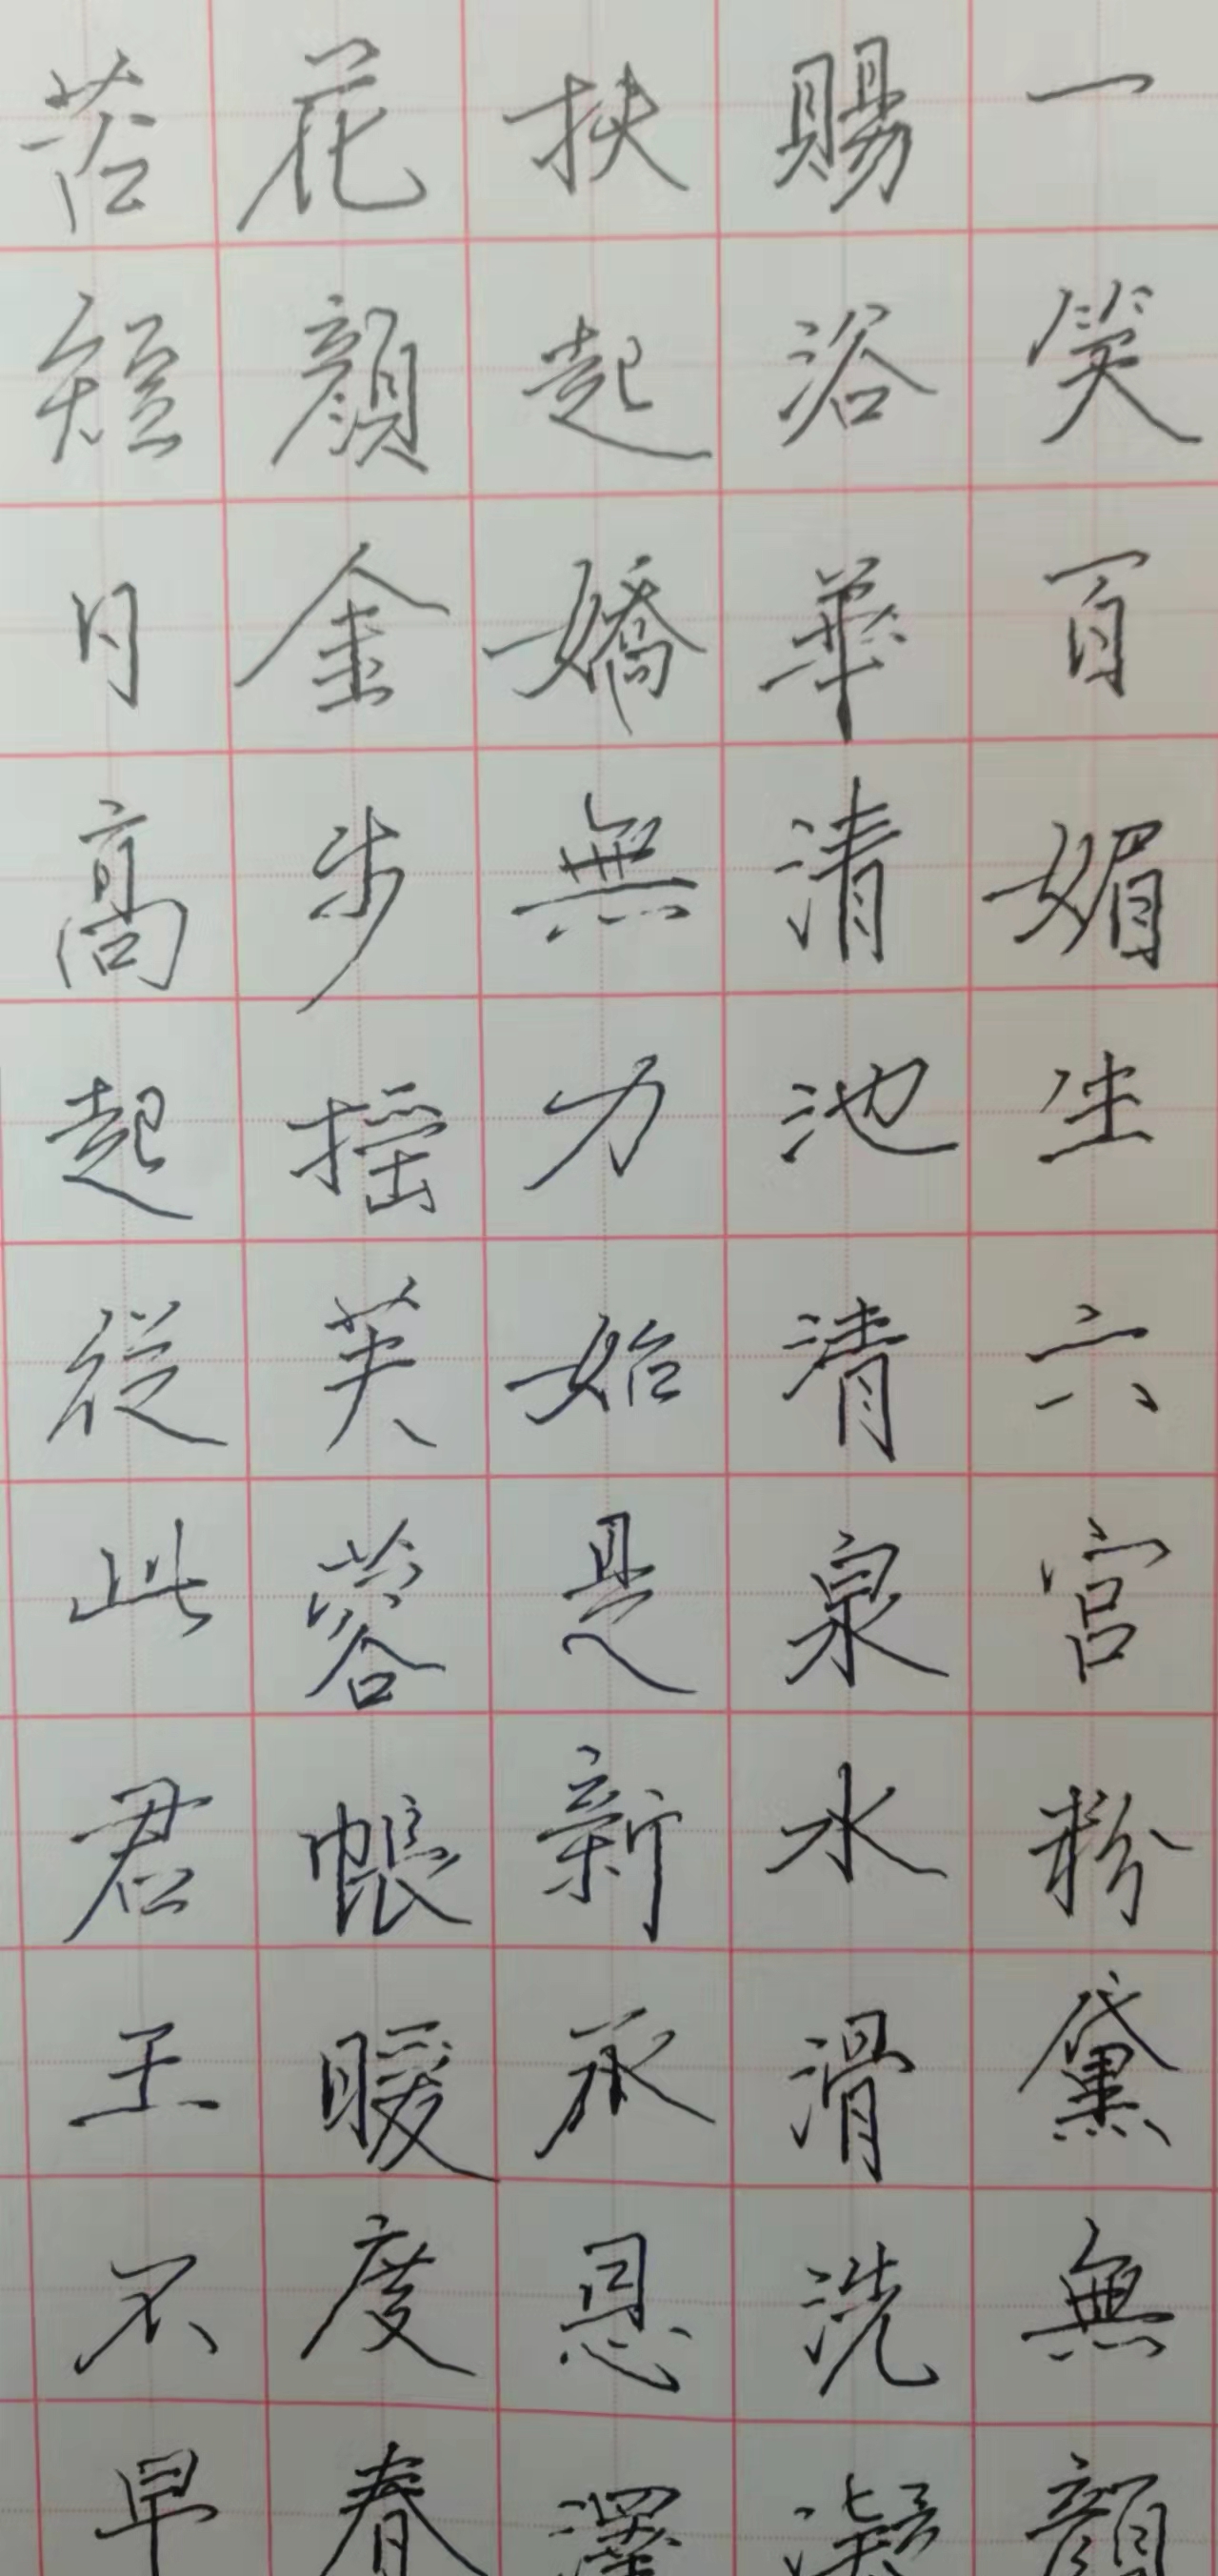 一笑百媚生六宫粉黛無顔
賜浴華清池清泉水滑洗凝
扶起嬌無力始是新承恩澤
花顔金步摇芙蓉帳暖度春
苦短日高起從此君王不早